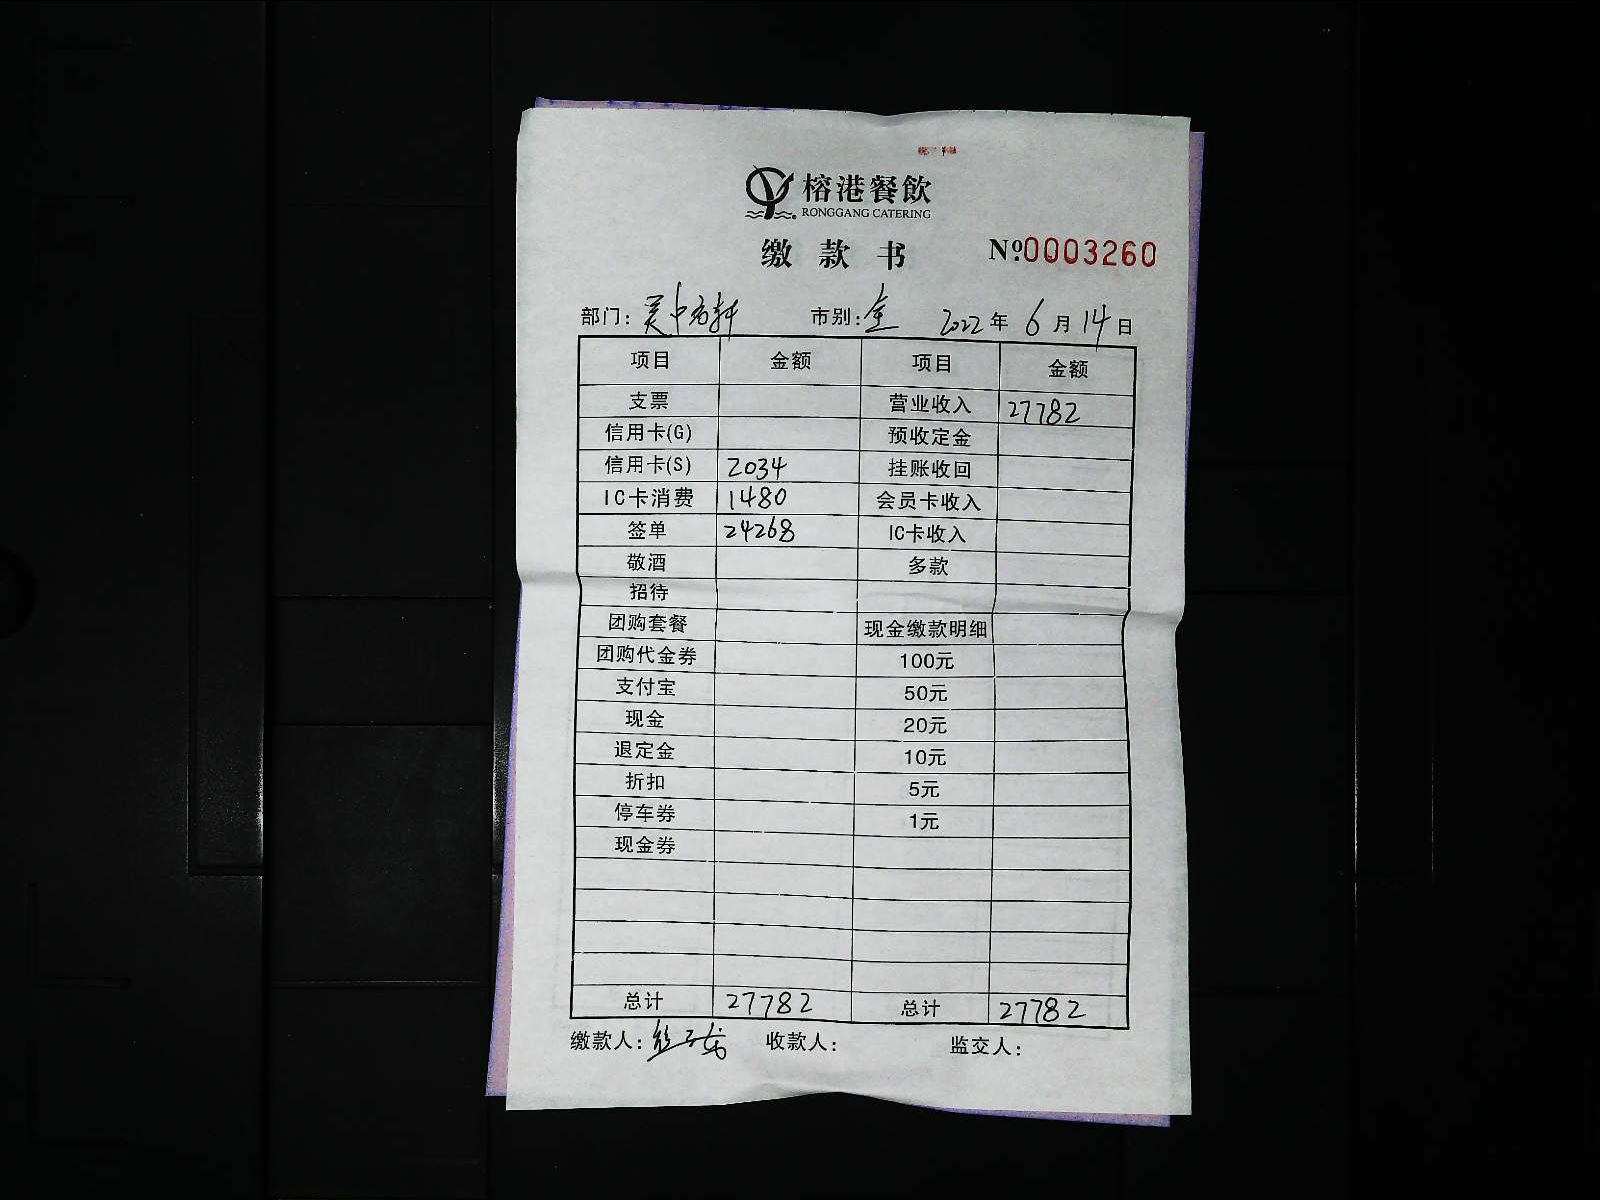 榕港餐飲
RONGGANG CATERING
缴款书 №0003260
部门: 市别:全 2022年6月14日
项目 金额 项目 金额
支票 营业收入 27782
信用卡(G) 预收定金
信用卡(S) 2034 挂账收回
IC卡消费 1480 会员卡收入
签单 24268 IC卡收入
敬酒 多款
招待
团购套餐 现金缴款明细
团购代金券 100元
支付宝 50元
现金 20元
退定金 10元
折扣 5元
停车券 1元
现金券
总计 27782 总计 27782
缴款人: 收款人: 监交人: